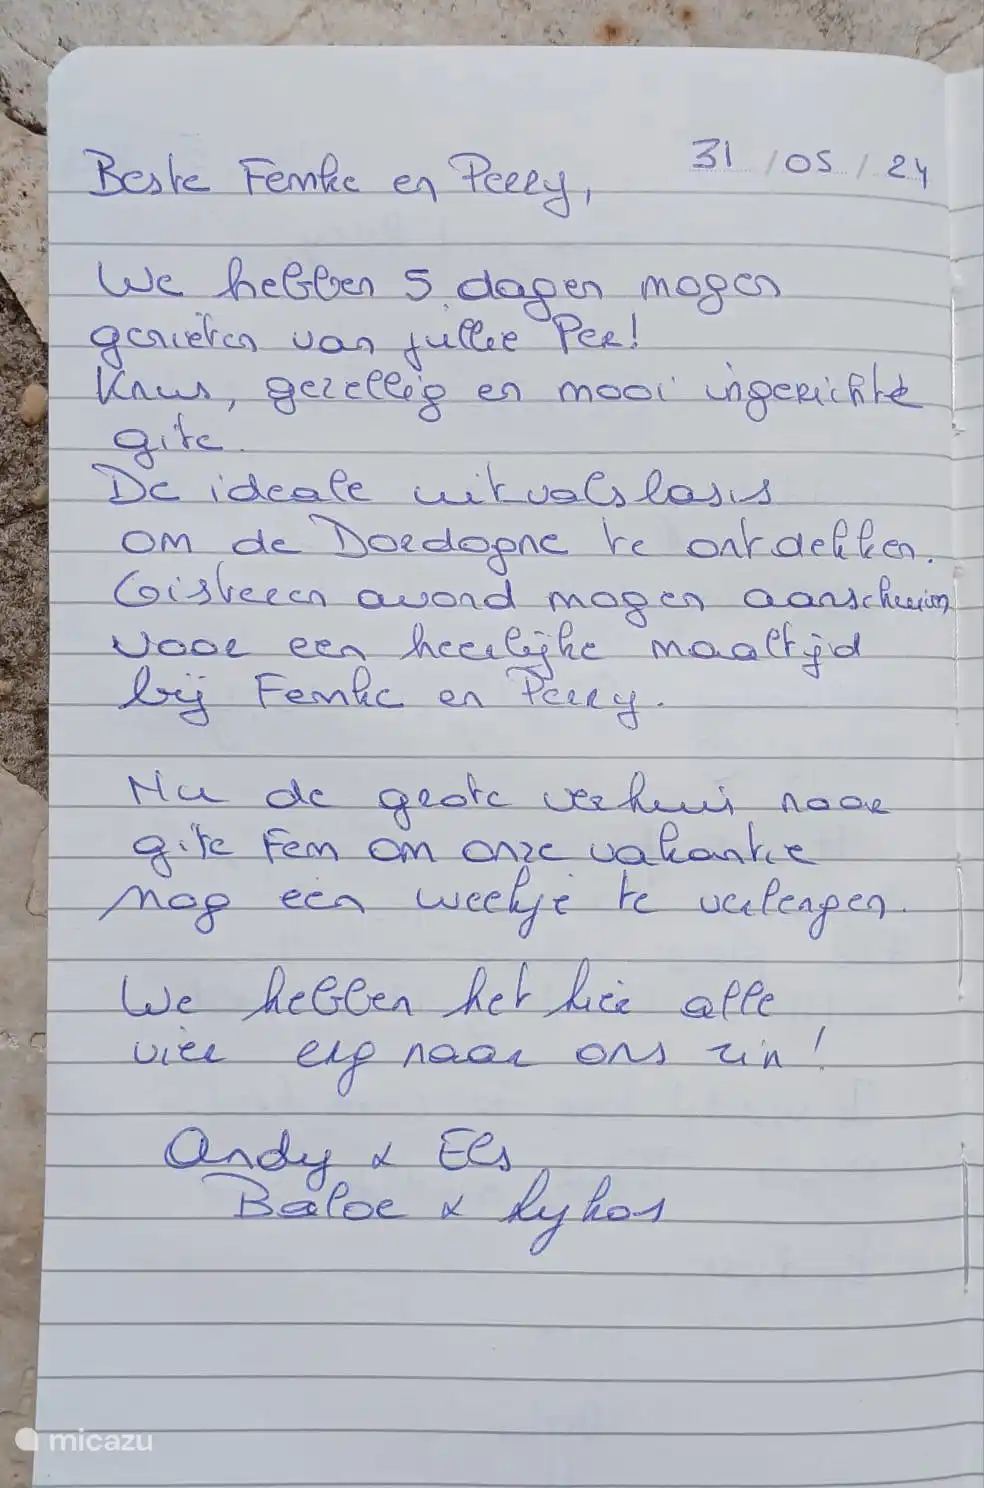 31/05/24
Beste Femke en Perry,
We hebben 5 dagen mogen
genieten van jullie Per!
Knus, gezellig en mooi ingerichte
gite.
De ideale uitvalsbasis
om de Dordogne te ontdekken.
Gisteren avond mogen aanschuiven
voor een heerlijke maaltijd
bij Femke en Perry.
Nu de grote verhuis naar
gite Fem om onze vakantie
nog een weekje te verlengen.
We hebben het hier alle
vier erg naar ons zin!
Andy & Els
Baloe & Lykos
micazu